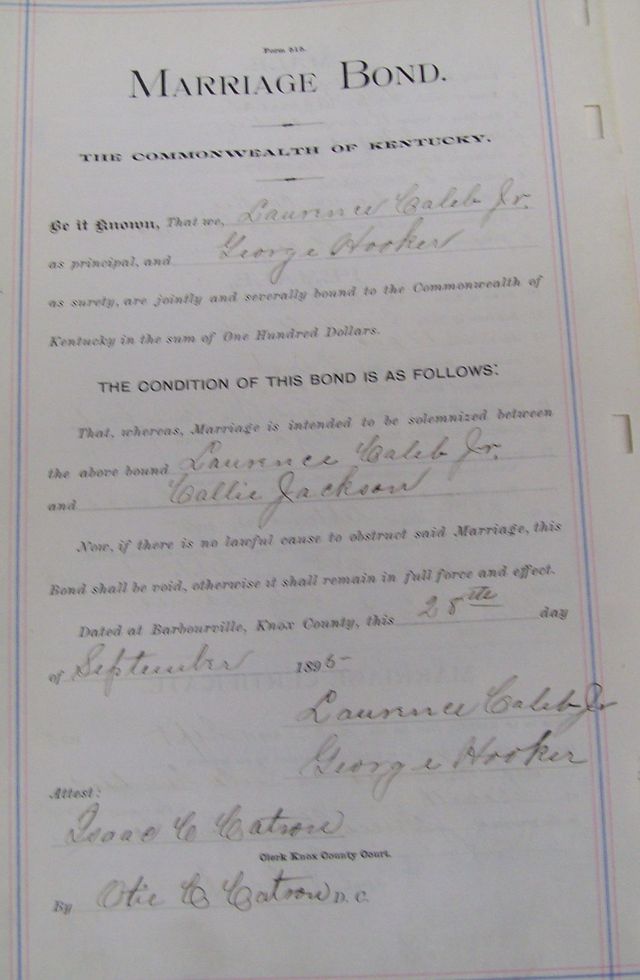 Form 515.
MARRIAGE BOND.
THE COMMONWEALTH OF KENTUCKY.
Be it Known, That we, Laurence Caleb Jr.
as principal, and George Hooker
as surety, are jointly and severally bound to the Commonwealth of
Kentucky in the sum of One Hundred Dollars.
THE CONDITION OF THIS BOND IS AS FOLLOWS:
That, whereas, Marriage is intended to be solemnized between
the above bound Laurence Caleb Jr.
and Callie Jackson
Now, if there is no lawful cause to obstruct said Marriage, this
Bond shall be void, otherwise it shall remain in full force and effect.
Dated at Barbourville, Knox County, this 28th day
of September 1895
Laurence Caleb Jr
George Hooker
Attest:
Isaac C Catron
Clerk Knox County Court.
By Otie C Catron D. C.